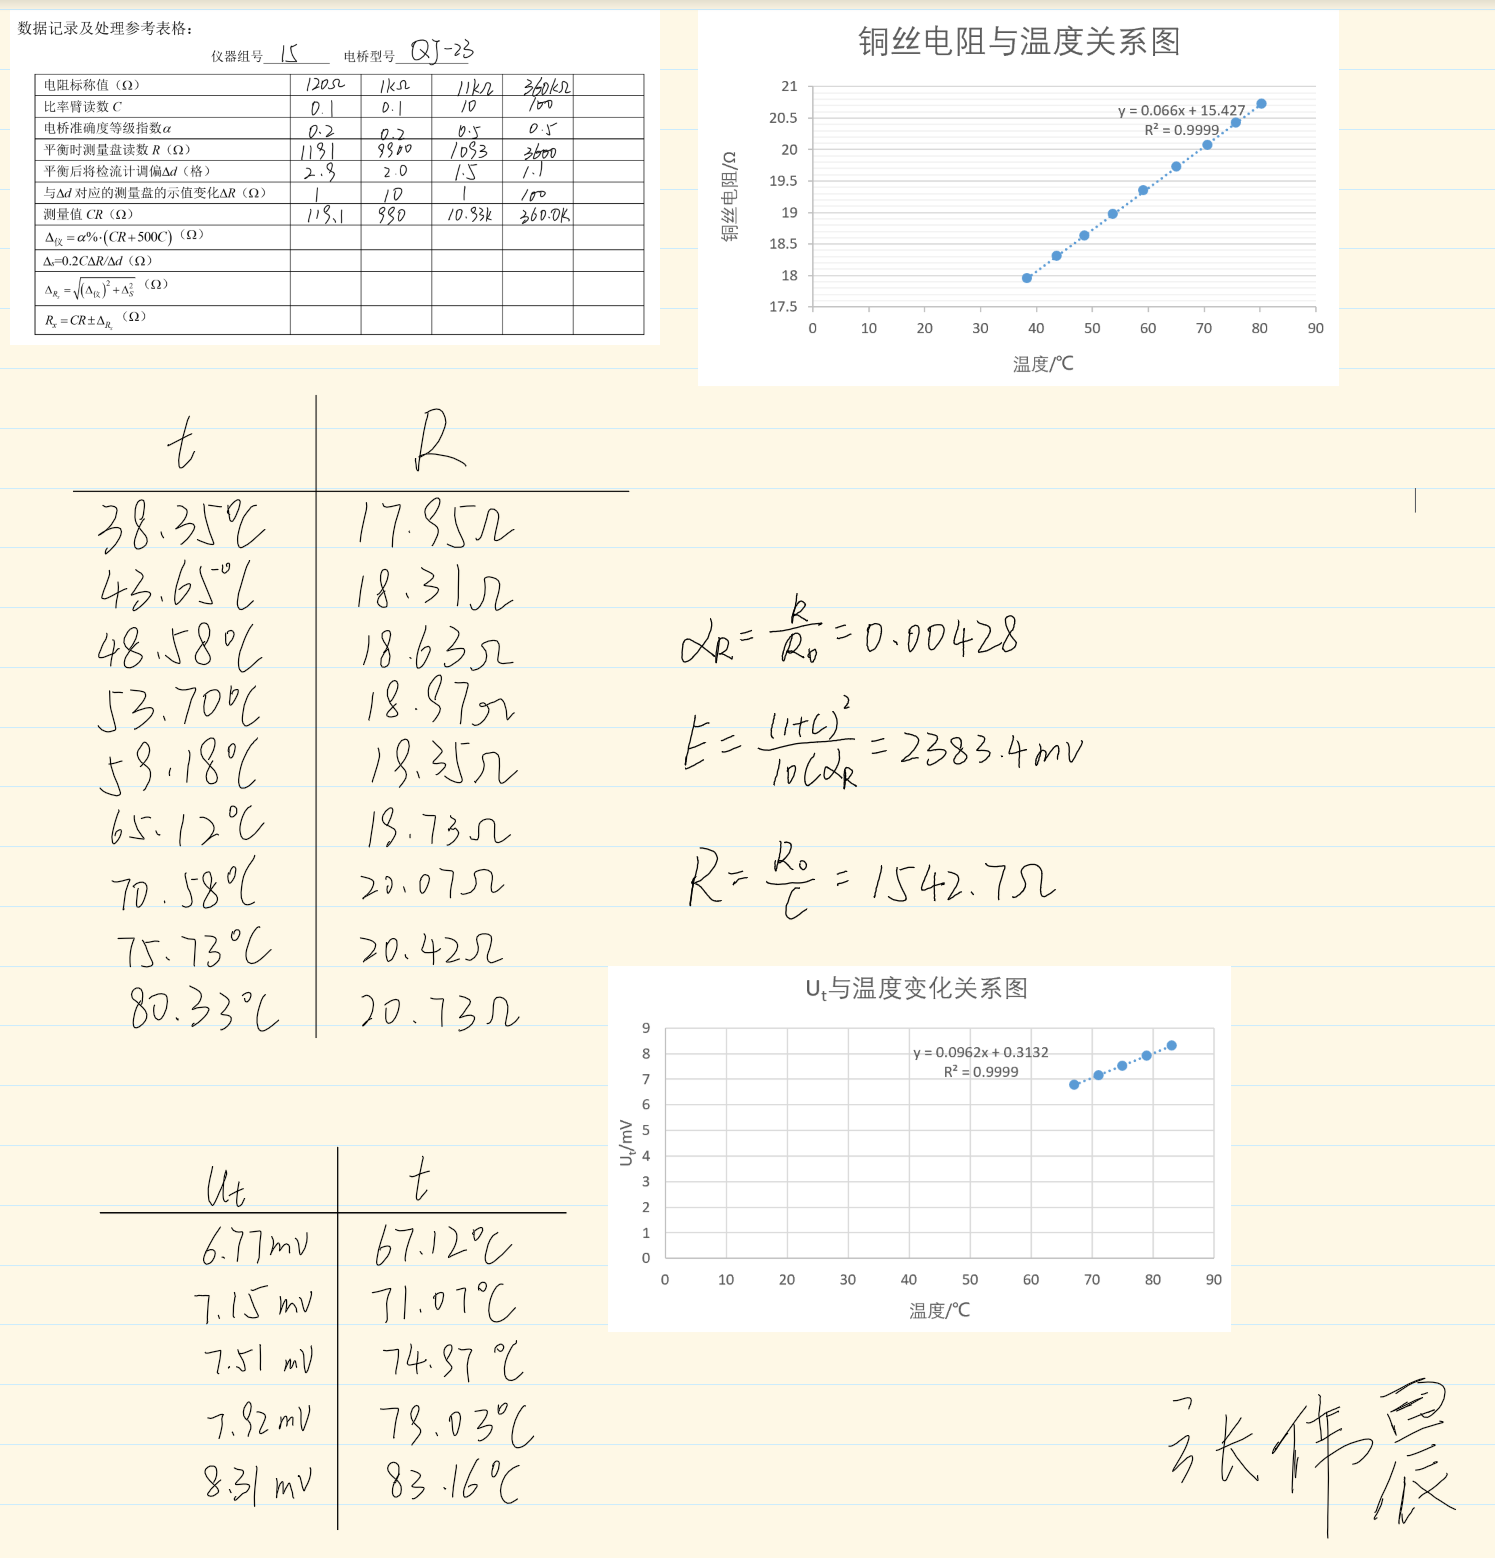 数据记录及处理参考表格：
仪器组号 15 电桥型号 QJ-23
电阻标称值（Ω） 120Ω 1kΩ 11kΩ 360kΩ
比率臂读数 C 0.1 0.1 10 100
电桥准确度等级指数α 0.2 0.2 0.5 0.5
平衡时测量盘读数 R（Ω） 1191 9900 1093 3600
平衡后将检流计调偏Δd（格） 2.9 2.0 1.5 1.1
与Δd 对应的测量盘的示值变化ΔR（Ω） 1 10 1 100
测量值 CR（Ω） 119.1 990 10.93k 360.0k
Δ仪 = α%·(CR+500C)（Ω）
Δs=0.2CΔR/Δd（Ω）
ΔRx = √((Δ仪)²+ΔS²)（Ω）
Rx = CR±ΔRx（Ω）
铜丝电阻与温度关系图
21
20.5
20
19.5
19
18.5
18
17.5
y = 0.066x + 15.427
R² = 0.9999
铜丝电阻/Ω
0 10 20 30 40 50 60 70 80 90
温度/℃
t R
38.35℃ 17.95Ω
43.65℃ 18.31Ω
48.58℃ 18.63Ω
53.70℃ 18.97Ω
59.18℃ 19.35Ω
65.12℃ 19.73Ω
70.58℃ 20.07Ω
75.73℃ 20.42Ω
80.33℃ 20.73Ω
αR = k/R0 = 0.00428
E = (1+C)²/10CαR = 2383.4mV
R = R0/C = 1542.7Ω
Ut与温度变化关系图
9
8
7
6
5
4
3
2
1
0
y = 0.0962x + 0.3132
R² = 0.9999
Ut/mV
0 10 20 30 40 50 60 70 80 90
温度/℃
Ut t
6.77mV 67.12℃
7.15mV 71.07℃
7.51mV 74.97℃
7.92mV 79.03℃
8.31mV 83.16℃
张伟晨